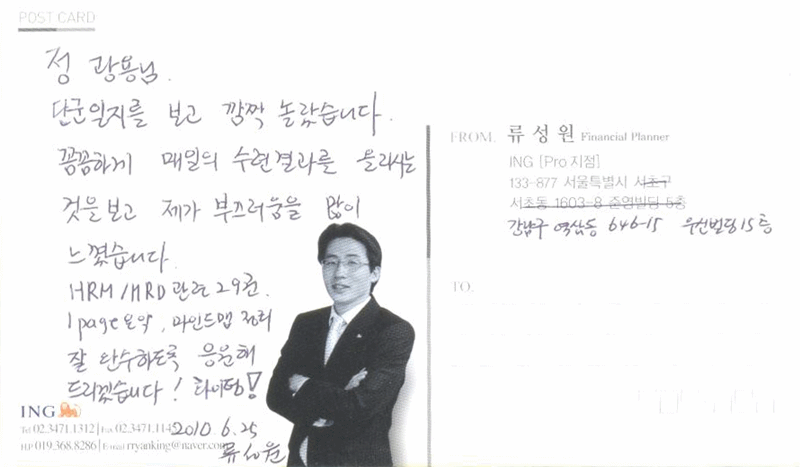 POST CARD
정 광용님.
단군일지를 보고 깜짝 놀랐습니다.
꼼꼼하게 매일의 수련결과를 올리시는
것을보고 제가 부끄러움을 많이
느꼈습니다.
HRM/HRD 관련 29권.
1 page 요약, 마인드맵 정리
잘 완수하도록 응원해
드리겠습니다! 화이팅!
2010 6.25
류성원
ING
Tel 02.3471.1312 | Fax 02.3471.114
HP 019.368.8286 | E-mail rryanking@naver.com
FROM. 류성원 Financial Planner
ING [Pro지점]
133-877 서울특별시 서초구
서초동 1603-8 준영빌딩 5층
강남구 역삼동 646-15 우신빌딩 15층
TO.